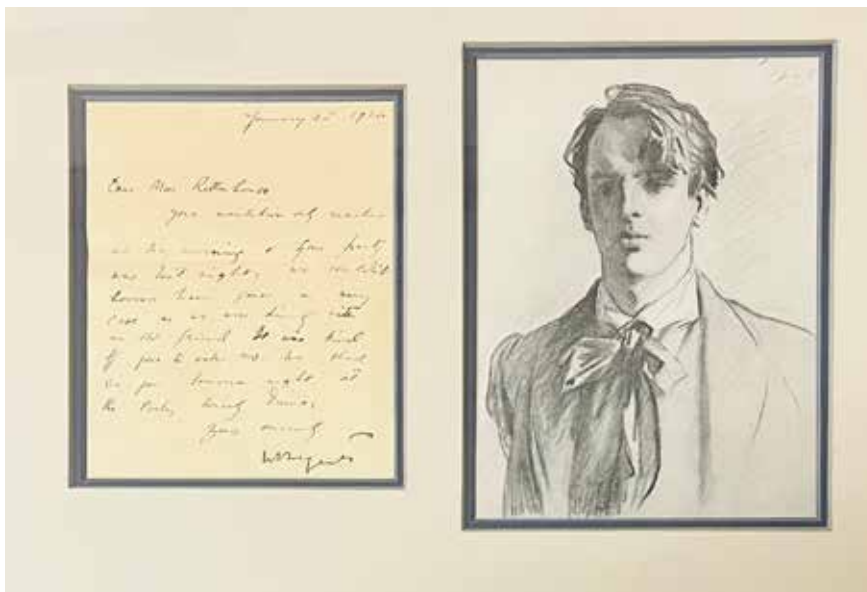 January 25 1920
Dear Mrs Rittenhouse
your invitation only reached
us the morning & your party
was last night; we couldn't
however have gone in any
case as we were dining with
an old friend. It was kind
of you to ask me. We shall
see you tomorrow night at
the Poetry Society Dinner.
Yours sincerely
WB Yeats